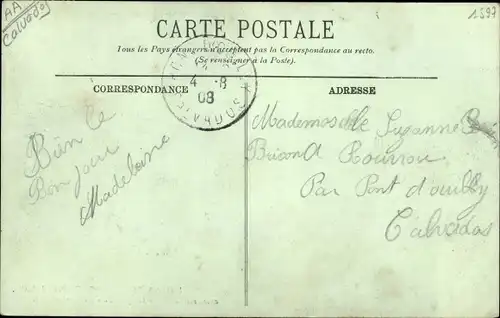 AA
Calvados
1597
CARTE POSTALE
Tous les Pays étrangers n'acceptent pas la Correspondance au recto.
(Se renseigner à la Poste).
4 -8
08
CALVADOS
CORRESPONDANCE
ADRESSE
Bonjour
Madelaine
Mademoiselle Suzanne
Par Pont d'ouilly
Calvados